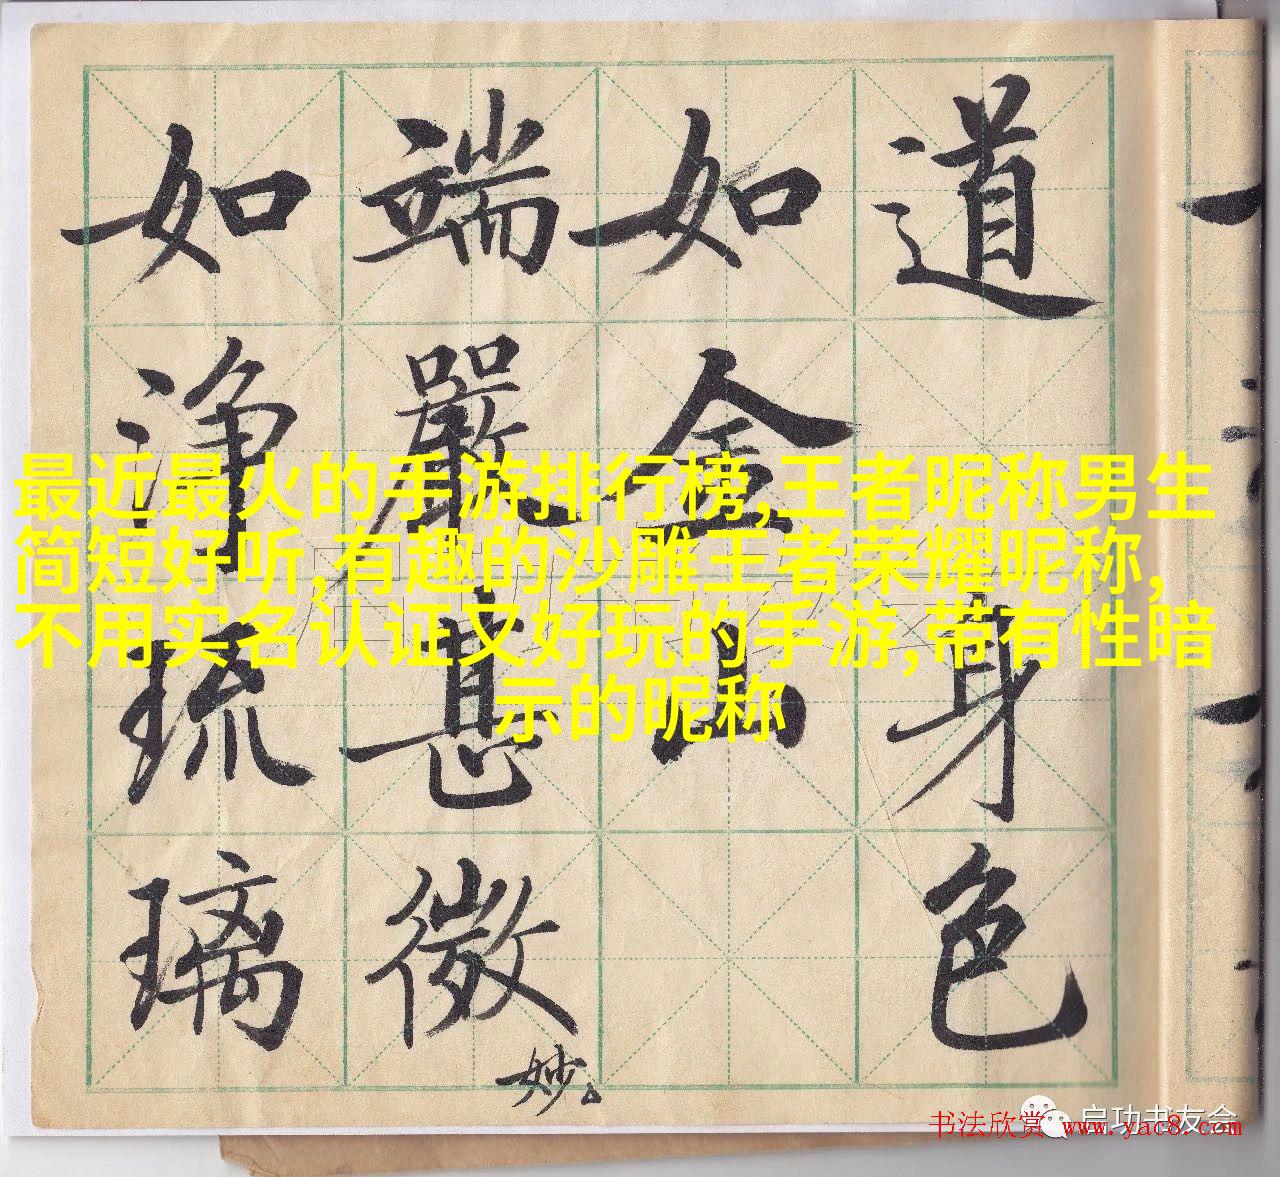 道身色
如金山
端嚴甚微妙
如淨琉璃
最近最火的手游排行榜,王者昵称男生
简短好听,有趣的沙雕王者荣耀昵称,
不用实名认证又好玩的手游,带有性暗
示的昵称
启功书友会
书法欣赏 www.yac8.com